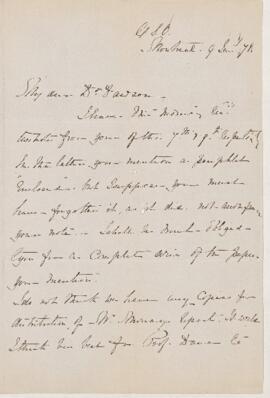 Montreal. 9
My dear Dr Dawson -
I have this morning
notes from you of the 7th & 9th
In the latter you mention a pamphlet
"Enclosed" - but I suppose you must
have forgotten it, as it did not accompany
your note. - I shall be much obliged
to you for a complete series of the papers
you mention.
I do not think we have any copies for
distribution of Mr Murray's report. It would
I think be best for Prof. Dana to